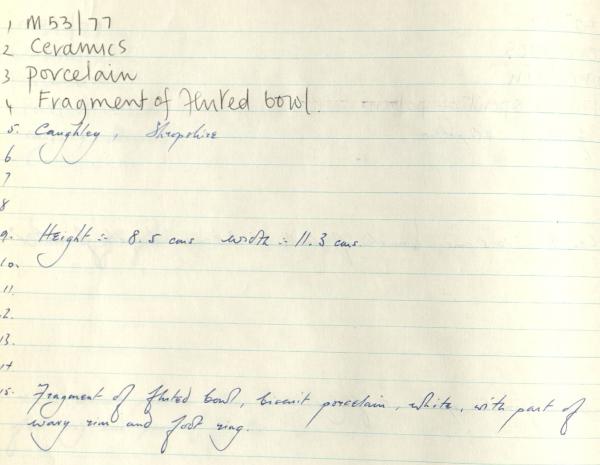 1 M53/77
2 Ceramics
3 Porcelain
4 Fragment of fluted bowl.
5. Caughley, Shropshire
6
7
8
9. Height :- 8.5 cms width :- 11.3 cms.
10.
11.
12.
13.
14
15. Fragment of fluted bowl, biscuit porcelain, white, with part of
wavy rim and foot ring.